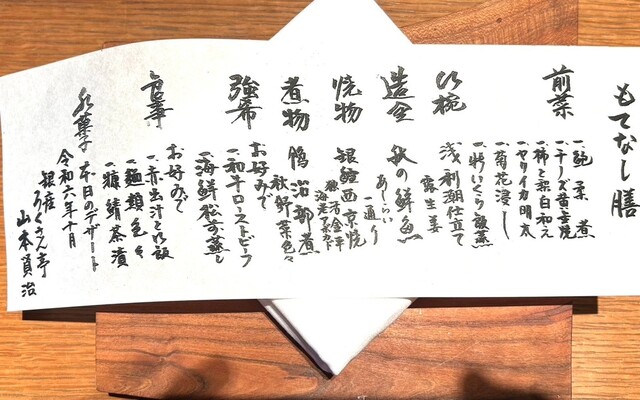 もてなし膳
前菜
一、チーズ黄金焼
一、柿と梨白和え
一、ヤリイカ明太
一、菊花浸し
一、いくら飯蒸
吸椀
浅利潮仕立て
露生姜
造里
秋の鮮魚
あしらい
一通り
焼物
銀鱈西京焼
海老アボカド
煮物
鴨治部煮
秋野菜色々
強肴
お好みで
一、和牛ローストビーフ
一、海鮮松前蒸し
食事
お好みで
一、赤出汁と御飯
一、麺類色々
一、糠鯖茶漬
水菓子
本日のデザート
令和六年十月
銀座
ろくさん亭
山本員治